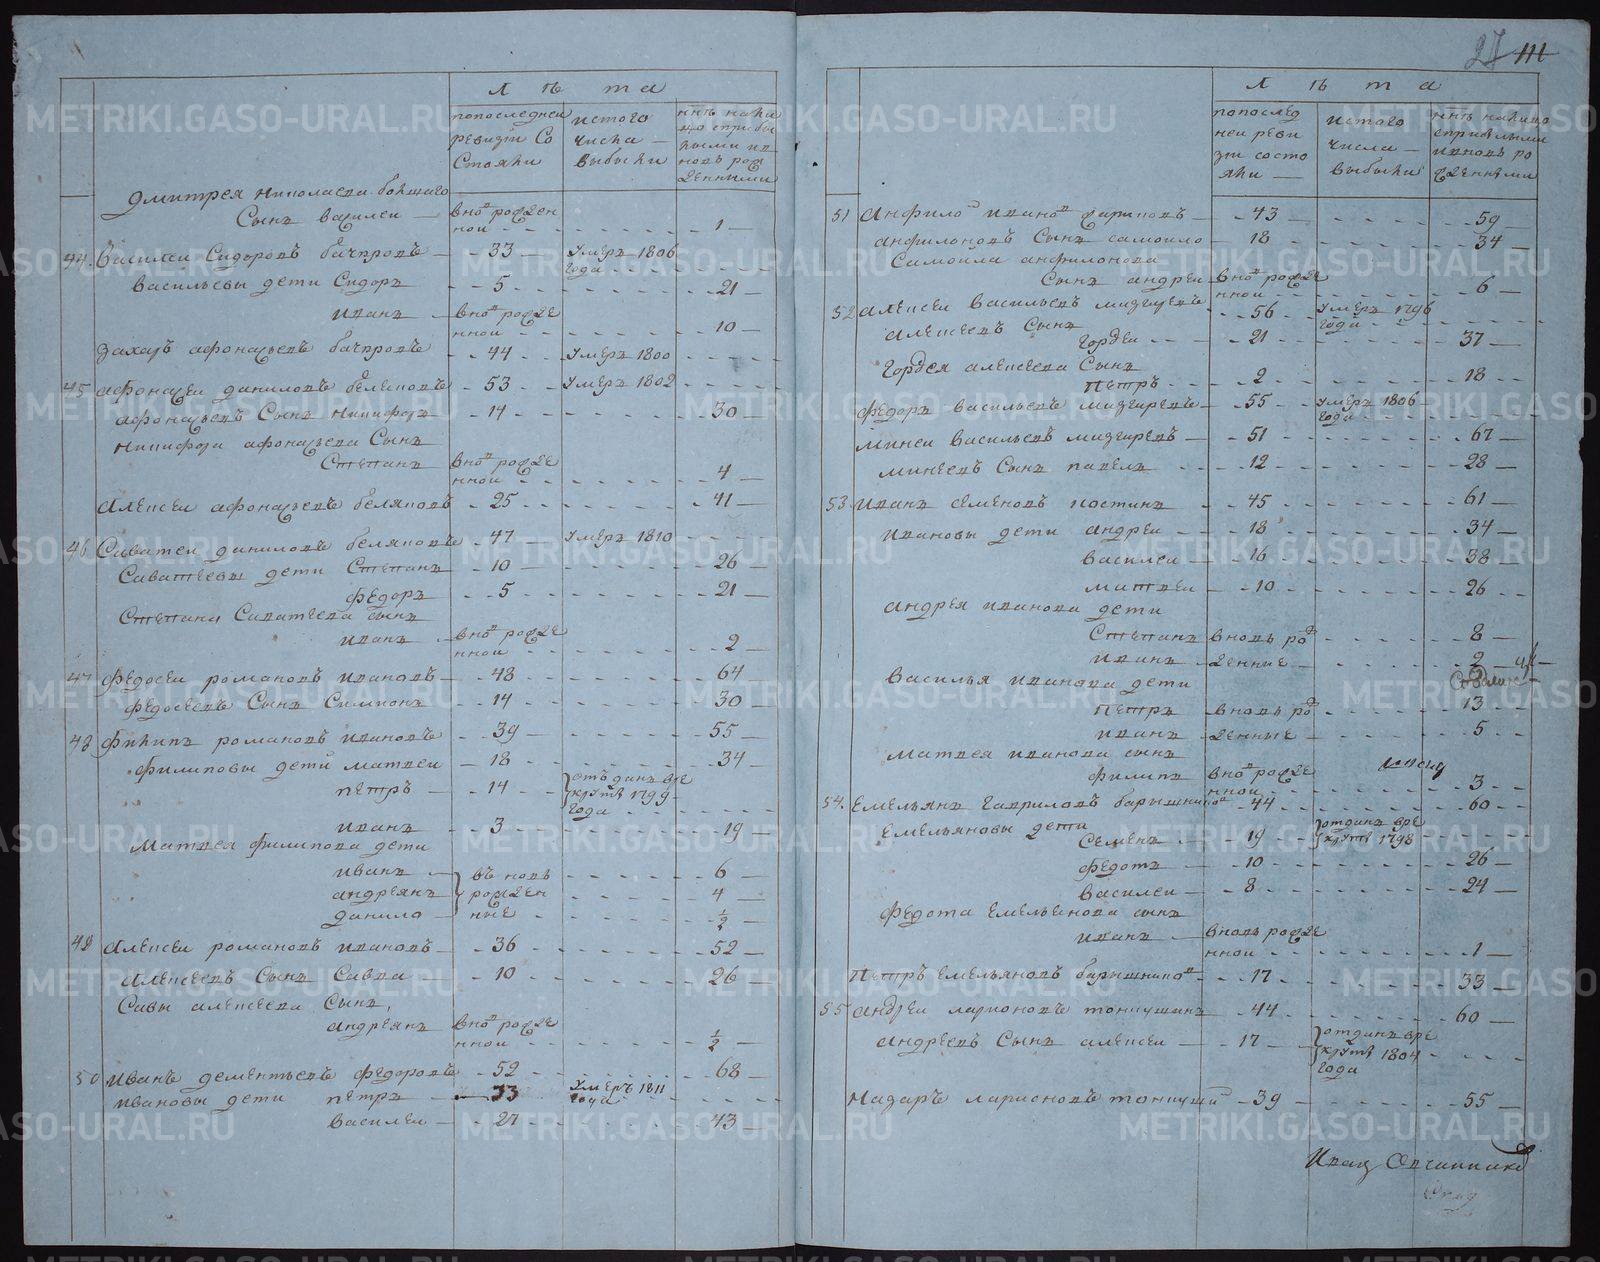 Лѣта
попоследней ревизiи состояли
истого числа выбыли
Дмитрея Николаева большаго
сынъ Василеи — вновь рожденнои 1
44. Василеи Сидоровъ 33 умеръ 1806 года
Васильевы дети Сидоръ 5 21
Иванъ вновь рожденнои 10
Захаръ Афонасьевъ 44 умеръ 1800
45 Афонасеи Даниловъ Беляковъ 53 умеръ 1802
Афонасьевъ сынъ Никифоръ 14 30
Никифора Афонасьева сынъ
Степанъ вновь рожденнои 4
Алексеи Афонасьевъ Беляковъ 25 41
46 Саватеи Даниловъ Беляковъ 47 умеръ 1810
Саватеевы дети Степанъ 10 26
Федоръ 5 21
Степана Саватеева сынъ
Иванъ вновь рожденнои 2
47 Федосеи Романовъ Ивановъ 48 64
Федосеевъ сынъ Симионъ 14 30
48 Филипъ Романовъ Ивановъ 39 55
Филиповы дети Матвеи 18 34
Петръ 14 отъданъ врекруты 1799 года
Иванъ 3 19
Матвея Филипова дети
Иванъ въновь рожденные 6
Андреянъ 4
Данило ½
49 Алексеи Романовъ Ивановъ 36 52
Алексеевъ сынъ Савва 10 26
Савы Алексеева сынъ
Андреянъ вновь рожденнои ½
50 Иванъ Дементьевъ Федоровъ 52 68
Ивановы дети Петръ 33 умеръ 1811 года
Василеи 27 43
27 111
Лѣта
попоследнеи ревизiи состояли
истого числа выбыли
51 Анфило Ивановъ 43 59
Анфилоновъ сынъ Самоило 18 34
Самоила Анфилонова
сынъ Андреи вновь рожденнои 6
52 Алексеи Васильевъ Мизгиревъ 56 умеръ 1796 года
Алексеевъ сынъ
Гордеи 21 37
Гордея Алексеева сынъ
Петръ 2 18
Федоръ Васильевъ Мизгиревъ 55 умеръ 1806 года
Минеи Васильевъ Мизгиревъ 51 67
Минеевъ сынъ Павелъ 12 28
53 Иванъ Семеновъ Костинъ 45 61
Ивановы дети Андреи 18 34
Василеи 16 38
Матвеи 10 26
Андрея Иванова дети
Степанъ вновь рожденные 8
Иванъ 2
Василья Иванова дети
Петръ вновь рожденные 13
Иванъ 5
Матвея Иванова сынъ
Филипъ вновь рожденнои 3
54. Емельянъ Гавриловъ Барышниковъ 44 60
Емельяновы дети
Семенъ 19 отданъ врекруты 1798
Федотъ 10 26
Василеи 8 24
Федота Емельянова сынъ
Иванъ вновь рожденнои 1
Петръ Емельяновъ Барышниковъ 17 33
55 Андреи Ларионовъ Токкушинъ 44 60
Андреевъ сынъ Алексеи 17 отданъ врекруты 1804 года
Назаръ Ларионовъ 39 55
Иванъ Овчинников
METRIKI.GASO-URAL.RU